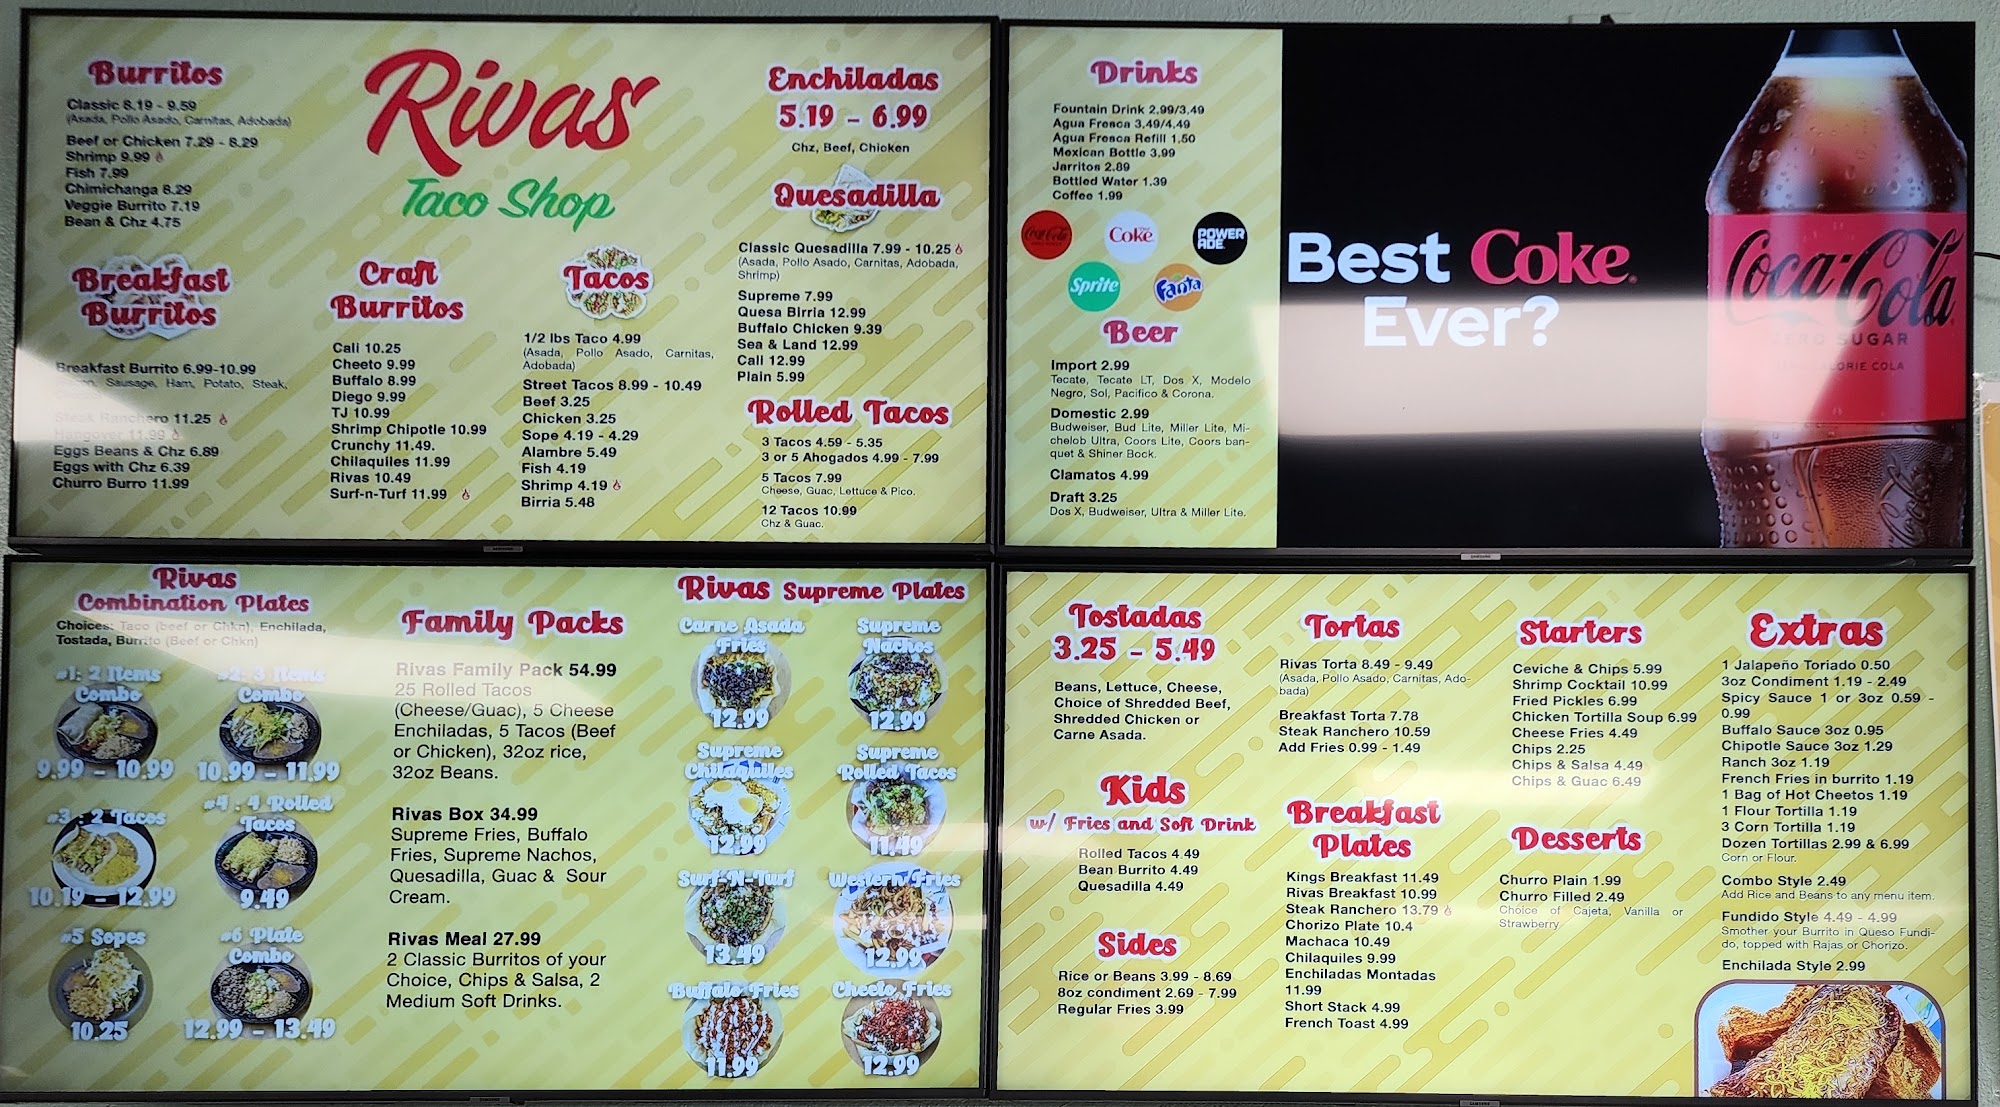 Burritos
Classic 8.19 - 9.59
(Asada, Pollo Asado, Carnitas, Adobada)
Beef or Chicken 7.29 - 8.29
Shrimp 9.99
Fish 7.99
Chimichanga 8.29
Veggie Burrito 7.19
Bean & Chz 4.75
Rivas
Taco Shop
Enchiladas
5.19 - 6.99
Chz, Beef, Chicken
Quesadilla
Classic Quesadilla 7.99 - 10.25
(Asada, Pollo Asado, Carnitas, Adobada,
Shrimp)
Supreme 7.99
Quesa Birria 12.99
Buffalo Chicken 9.39
Sea & Land 12.99
Cali 12.99
Plain 5.99
Breakfast
Burritos
Breakfast Burrito 6.99-10.99
Sausage, Ham, Potato, Steak,
Steak Ranchero 11.25
Hangover 11.99
Eggs Beans & Chz 6.89
Eggs with Chz 6.39
Churro Burro 11.99
Craft
Burritos
Cali 10.25
Cheeto 9.99
Buffalo 8.99
Diego 9.99
TJ 10.99
Shrimp Chipotle 10.99
Crunchy 11.49.
Chilaquiles 11.99
Rivas 10.49
Surf-n-Turf 11.99
Tacos
1/2 lbs Taco 4.99
(Asada, Pollo Asado, Carnitas,
Adobada)
Street Tacos 8.99 - 10.49
Beef 3.25
Chicken 3.25
Sope 4.19 - 4.29
Alambre 5.49
Fish 4.19
Shrimp 4.19
Birria 5.48
Rolled Tacos
3 Tacos 4.59 - 5.35
3 or 5 Ahogados 4.99 - 7.99
5 Tacos 7.99
Cheese, Guac, Lettuce & Pico.
12 Tacos 10.99
Chz & Guac.
Drinks
Fountain Drink 2.99/3.49
Agua Fresca 3.49/4.49
Agua Fresca Refill 1.50
Mexican Bottle 3.99
Jarritos 2.89
Bottled Water 1.39
Coffee 1.99
Coca-Cola
Coke
POWER
ADE
Sprite
Fanta
Beer
Import 2.99
Tecate, Tecate LT, Dos X, Modelo
Negro, Sol, Pacifico & Corona.
Domestic 2.99
Budweiser, Bud Lite, Miller Lite, Mi-
chelob Ultra, Coors Lite, Coors ban-
quet & Shiner Bock.
Clamatos 4.99
Draft 3.25
Dos X, Budweiser, Ultra & Miller Lite.
Best Coke
Ever?
Coca-Cola
ZERO SUGAR
CALORIE COLA
Rivas
Combination Plates
Choices: Taco (beef or Chkn), Enchilada,
Tostada, Burrito (Beef or Chkn)
#1: 2 Items
Combo
9.99 - 10.99
#2: 3 Items
Combo
10.99 - 11.99
#3 : 2 Tacos
10.19 - 12.99
#4 : 4 Rolled
Tacos
9.49
#5 Sopes
10.25
#6 Plate
Combo
12.99 - 13.49
Family Packs
Rivas Family Pack 54.99
25 Rolled Tacos
(Cheese/Guac), 5 Cheese
Enchiladas, 5 Tacos (Beef
or Chicken), 32oz rice,
32oz Beans.
Rivas Box 34.99
Supreme Fries, Buffalo
Fries, Supreme Nachos,
Quesadilla, Guac & Sour
Cream.
Rivas Meal 27.99
2 Classic Burritos of your
Choice, Chips & Salsa, 2
Medium Soft Drinks.
Rivas Supreme Plates
Carne Asada
Fries
12.99
Supreme
Nachos
12.99
Supreme
Chilaquiles
12.99
Supreme
Rolled Tacos
11.49
Surf-N-Turf
13.49
Western Fries
12.99
Buffalo Fries
11.99
Cheeto Fries
12.99
Tostadas
3.25 - 5.49
Beans, Lettuce, Cheese,
Choice of Shredded Beef,
Shredded Chicken or
Carne Asada.
Kids
w/ Fries and Soft Drink
Rolled Tacos 4.49
Bean Burrito 4.49
Quesadilla 4.49
Sides
Rice or Beans 3.99 - 8.69
8oz condiment 2.69 - 7.99
Regular Fries 3.99
Tortas
Rivas Torta 8.49 - 9.49
(Asada, Pollo Asado, Carnitas, Ado-
bada)
Breakfast Torta 7.78
Steak Ranchero 10.59
Add Fries 0.99 - 1.49
Breakfast
Plates
Kings Breakfast 11.49
Rivas Breakfast 10.99
Steak Ranchero 13.79
Chorizo Plate 10.4
Machaca 10.49
Chilaquiles 9.99
Enchiladas Montadas
11.99
Short Stack 4.99
French Toast 4.99
Starters
Ceviche & Chips 5.99
Shrimp Cocktail 10.99
Fried Pickles 6.99
Chicken Tortilla Soup 6.99
Cheese Fries 4.49
Chips 2.25
Chips & Salsa 4.49
Chips & Guac 6.49
Desserts
Churro Plain 1.99
Churro Filled 2.49
Choice of Cajeta, Vanilla or
Strawberry
Extras
1 Jalapeño Toriado 0.50
3oz Condiment 1.19 - 2.49
Spicy Sauce 1 or 3oz 0.59 -
0.99
Buffalo Sauce 3oz 0.95
Chipotle Sauce 3oz 1.29
Ranch 3oz 1.19
French Fries in burrito 1.19
1 Bag of Hot Cheetos 1.19
1 Flour Tortilla 1.19
3 Corn Tortilla 1.19
Dozen Tortillas 2.99 & 6.99
Corn or Flour.
Combo Style 2.49
Add Rice and Beans to any menu item.
Fundido Style 4.49 - 4.99
Smother your Burrito in Queso Fundi-
do, topped with Rajas or Chorizo.
Enchilada Style 2.99